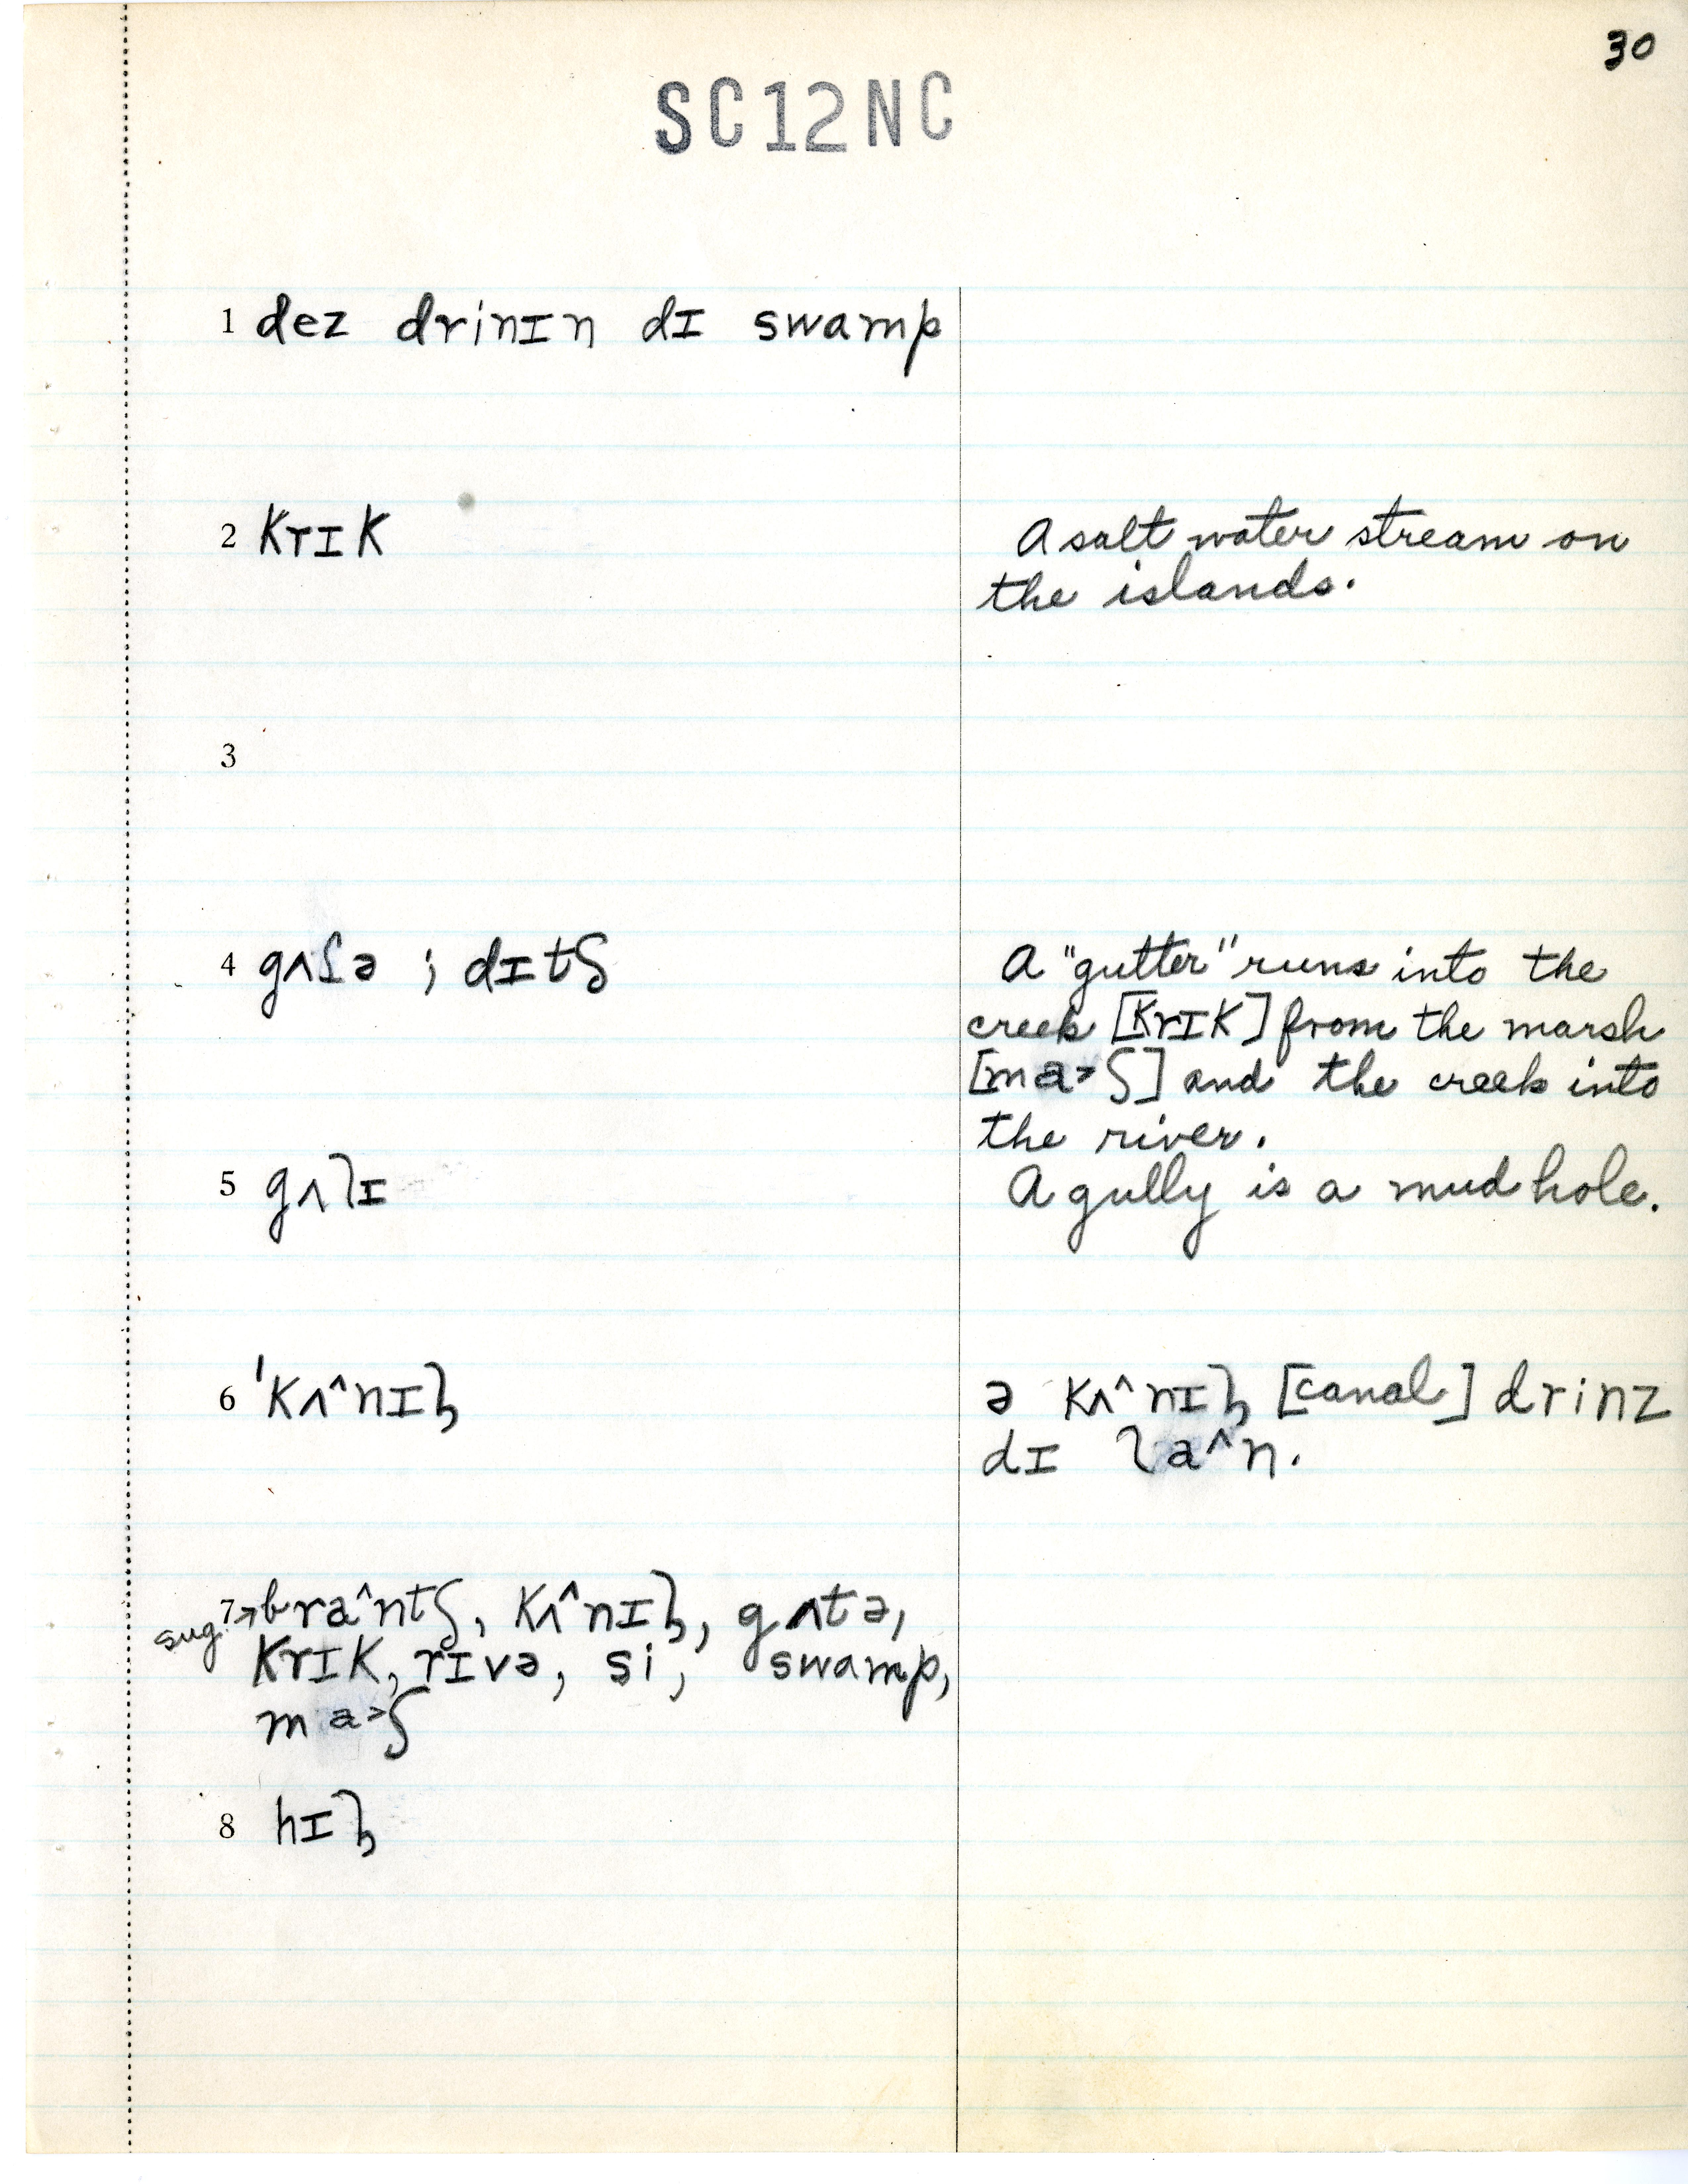 30
SC12NC
1 dez drinɪn dɪ swamp
2 krɪk
A salt water stream on
the islands.
3
4 gʌʆə ; dɪtʃ
A "gutter" runs into the
creek [krɪk] from the marsh
[ma˃ʃ] and the creek into
the river.
5 gʌlɪ
A gully is a mud hole.
6 ˈkʌ^nɪɫ
ə kʌ^nɪɫ [canal] drinz
dɪ la^n.
sug. 7 → bra^ntʃ, kʌ^nɪɫ, gʌtə,
krɪk, rɪvə, si, swamp,
ma˃ʃ
8 hɪɫ